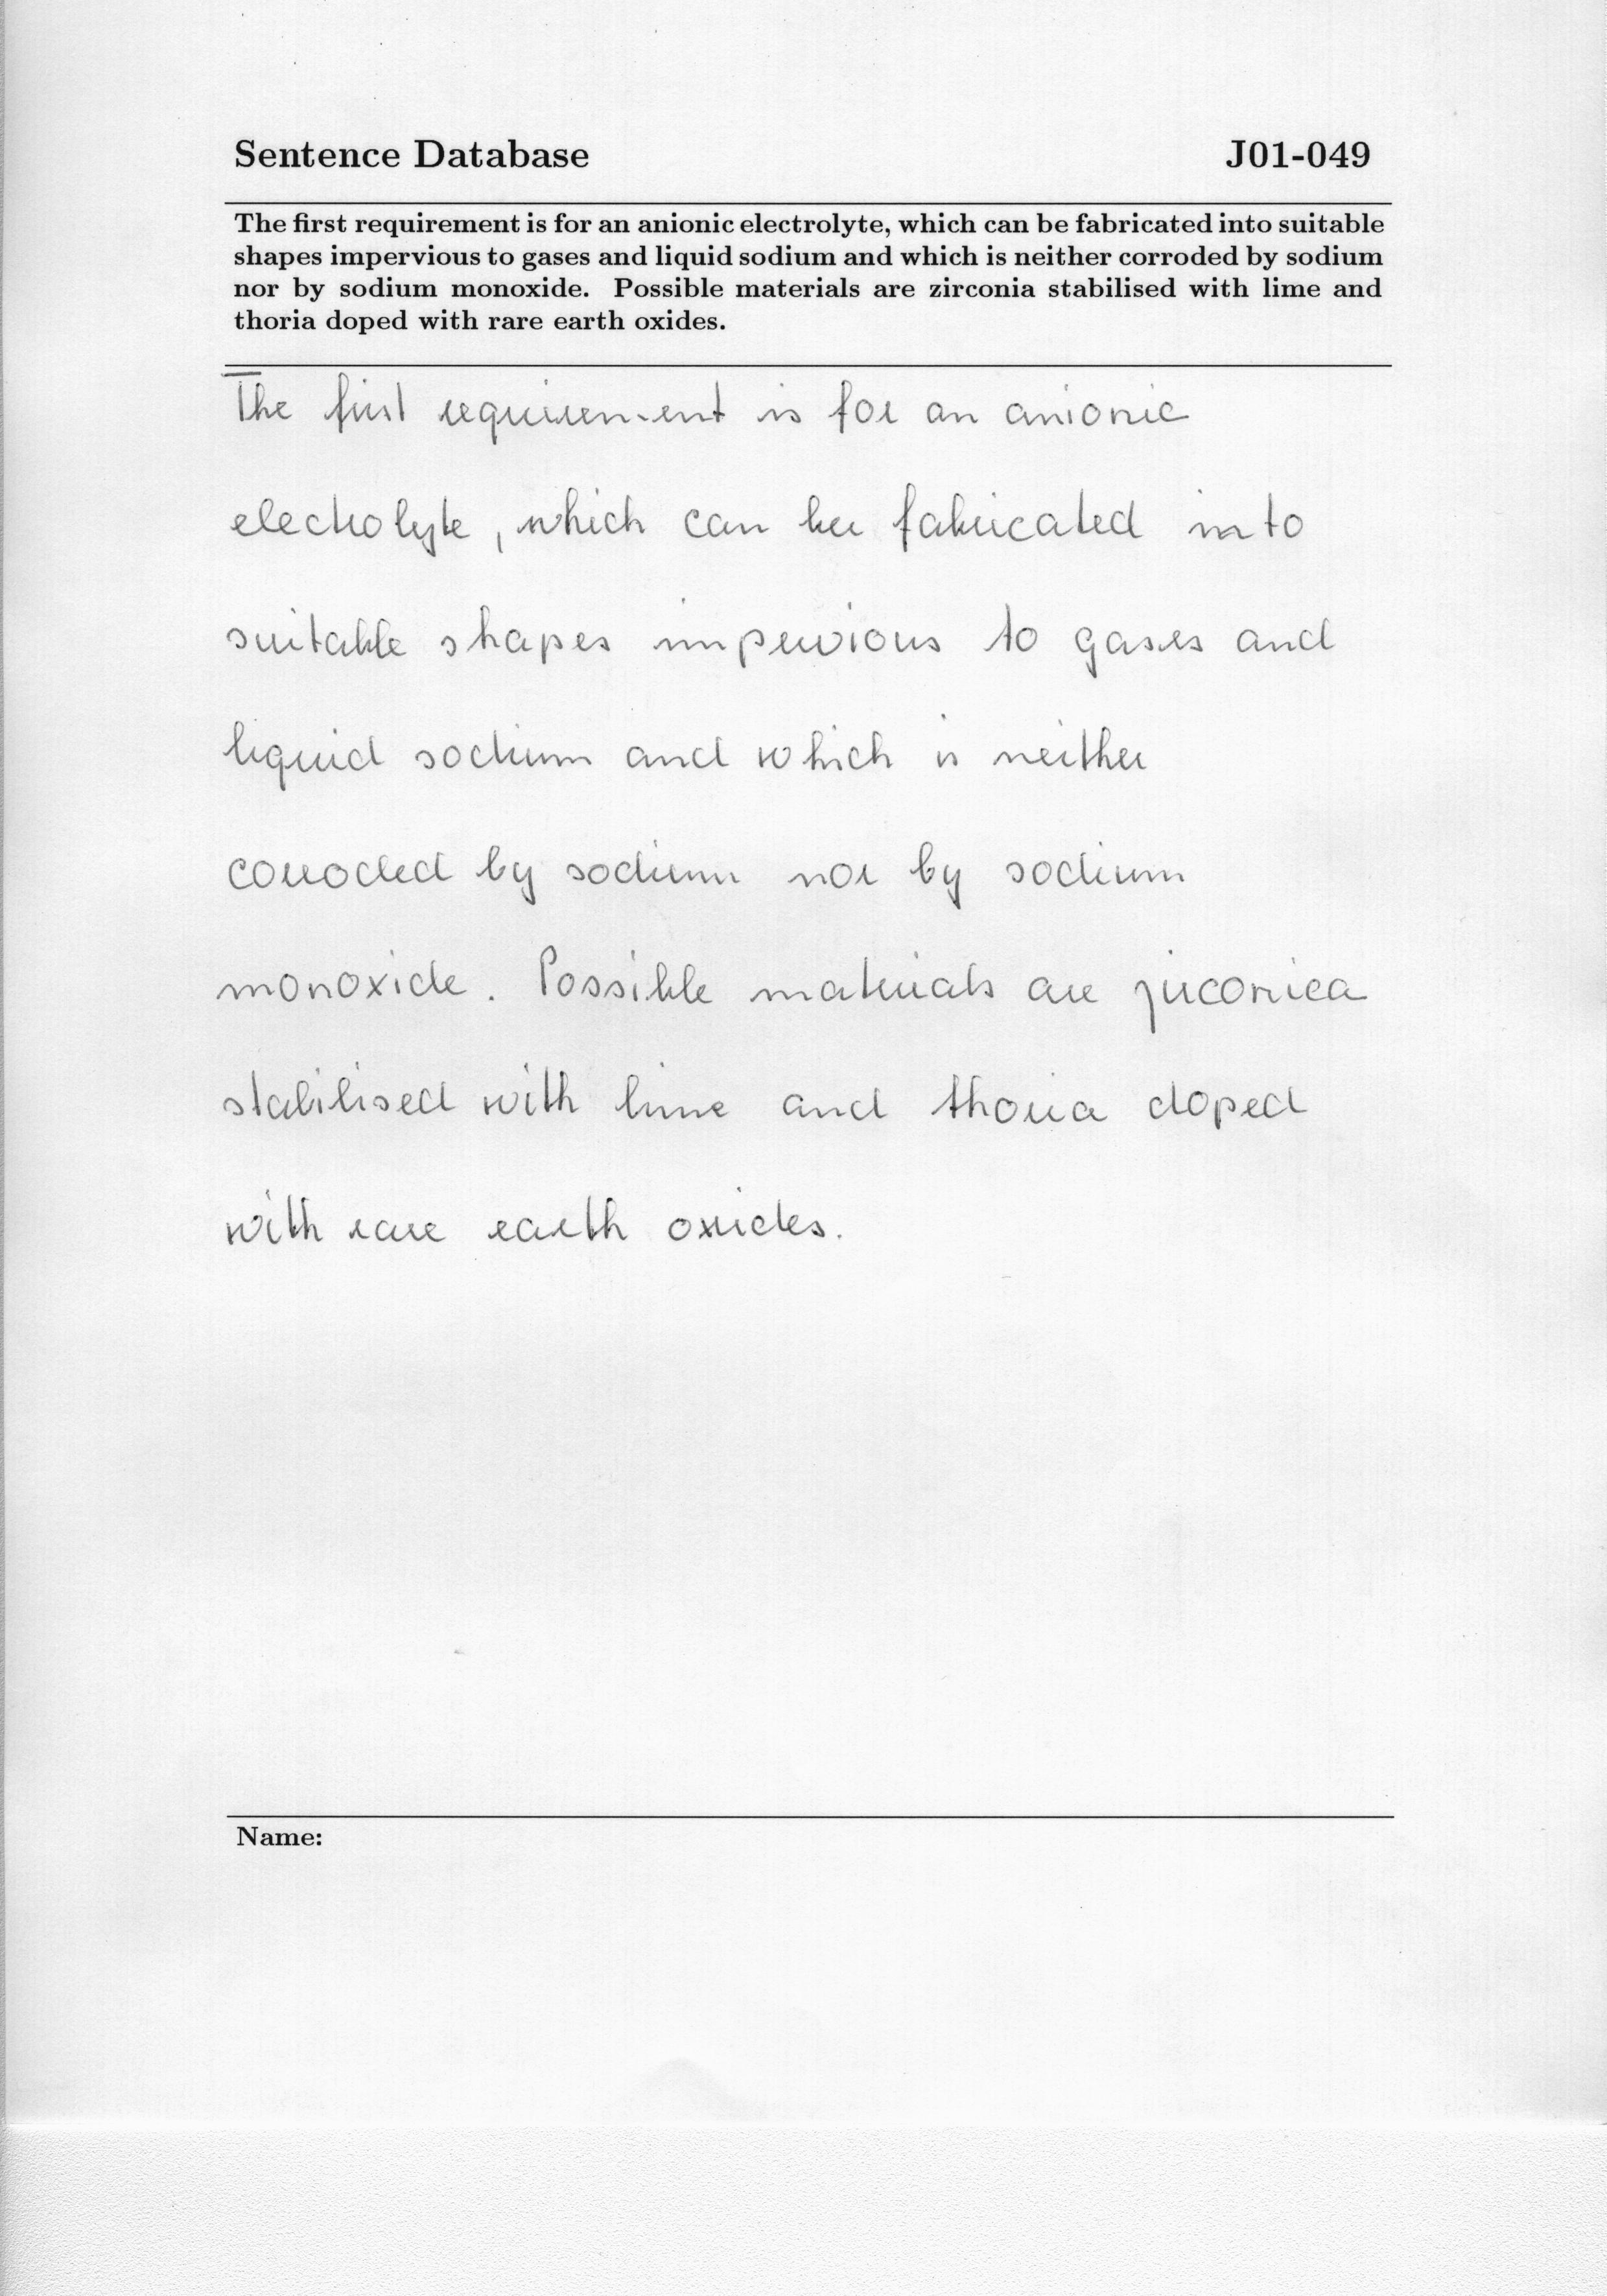 Sentence Database J01-049
The first requirement is for an anionic electrolyte, which can be fabricated into suitable
shapes impervious to gases and liquid sodium and which is neither corroded by sodium
nor by sodium monoxide. Possible materials are zirconia stabilised with lime and
thoria doped with rare earth oxides.
The first requirement is for an anionic
electrolyte, which can be fabricated into
suitable shapes impervious to gases and
liquid sodium and which is neither
corroded by sodium nor by sodium
monoxide. Possible materials are zirconia
stabilised with lime and thoria doped
with rare earth oxides.
Name: